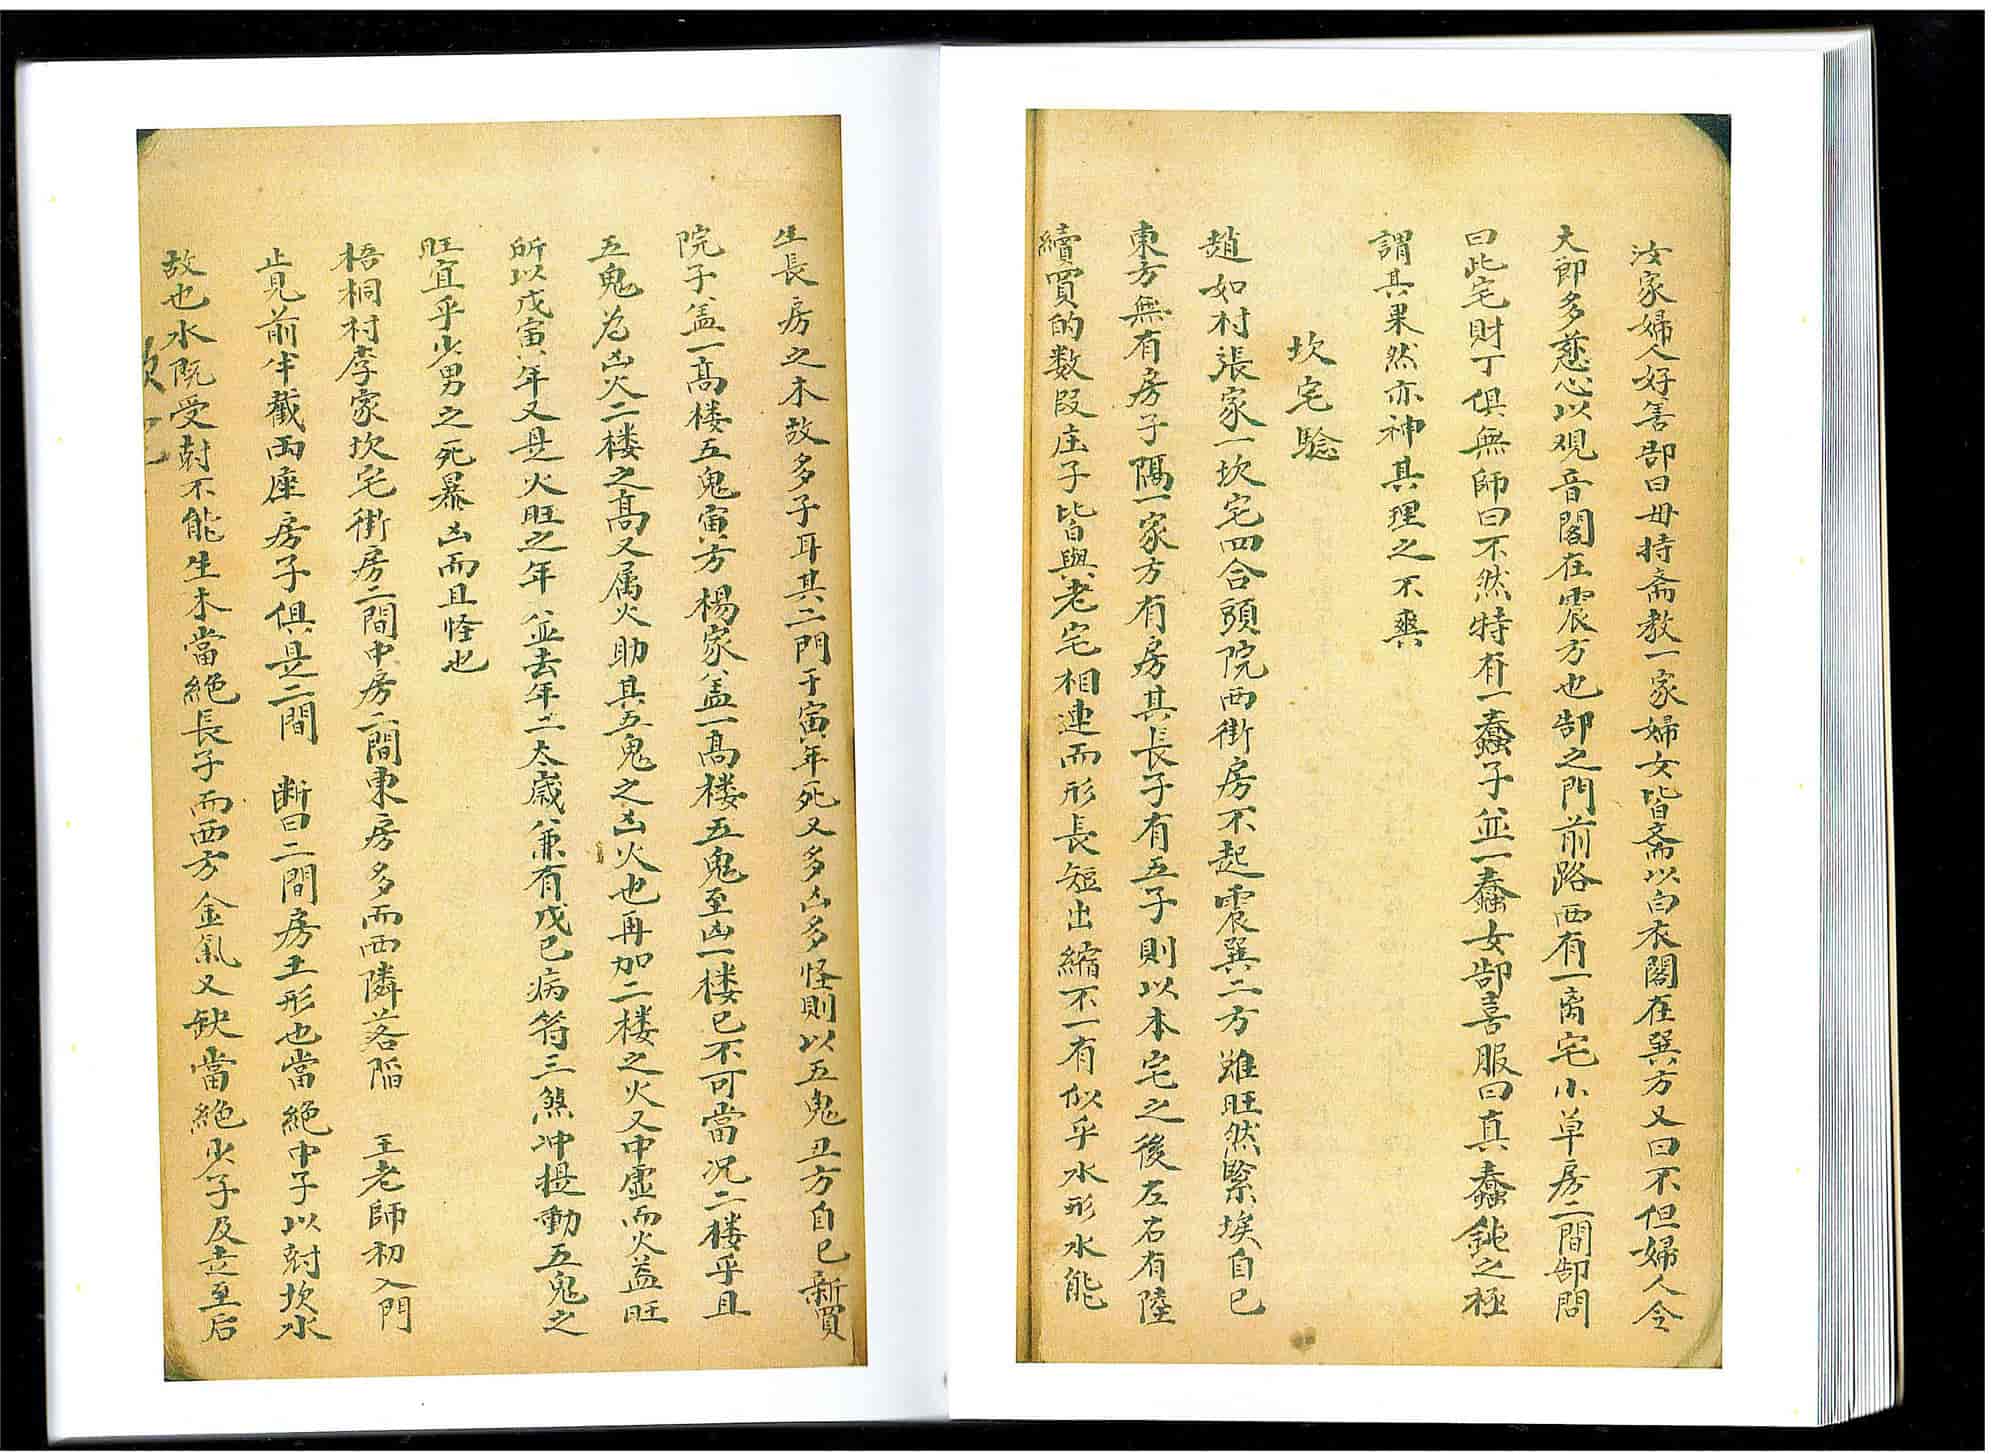 汝家婦人好善郜曰毋持斋教一家婦女皆斋以白衣閣在巽方又曰不但婦人令
大郎多慈心以观音閣在震方也郜之門前路西有一离宅小草房二間郜問
曰此宅财丁俱無師曰不然特有一蠢子並一蠢女郜喜服曰真蠢鈍之極
謂其果然亦神其理之不爽
坎宅騐
趙如村張家一坎宅四合頭院西街房不起震巽二方雖旺然緊埃自己
東方無有房子隔一家方有房其長子有五子則以本宅之後左右有陸
續買的数段庄子皆與老宅相連而形長短出縮不一有似乎水形水能
生長房之木故多子耳其二門于寅年死又多凶多怪則以五鬼丑方自己新買
院子盖一高楼五鬼寅方楊家盖一高楼五鬼至凶一楼已不可當况二楼乎且
五鬼为凶火二楼之高又属火助其五鬼之凶火也再加二楼之火又中虚而火益旺
所以戊寅年又是火旺之年並去年二太歲兼有戊己病符三煞冲提動五鬼之
旺宜乎少男之死暴凶而且怪也
梧桐村李家坎宅街房二間中房二間東房多而西隣落陷 王老師初入門
止見前半截两座房子俱是二間 断曰二間房土形也當絕中子以尅坎水
故也水既受尅不能生木當絕長子而西方金氣又缺當絕少子及走至后